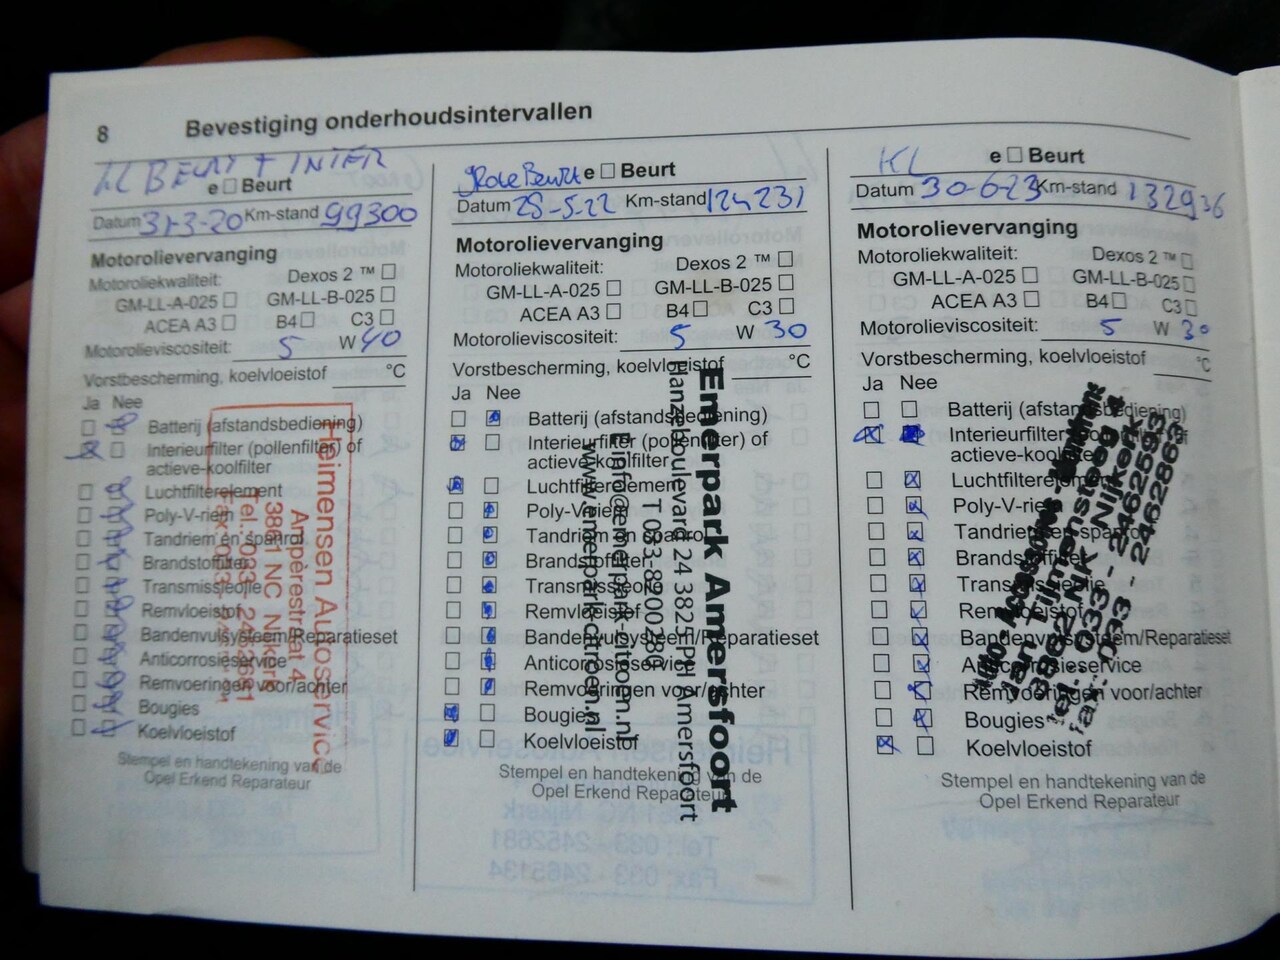 8 Bevestiging onderhoudsintervallen
KL BEURT + INTER
e ☐ Beurt
Datum 31-3-20 Km-stand 99300
Motorolievervanging
Motoroliekwaliteit: Dexos 2 ™ ☐
GM-LL-A-025 ☐ GM-LL-B-025 ☐
ACEA A3 ☐ B4 ☐ C3 ☐
Motorolieviscositeit: 5 W 40
Vorstbescherming, koelvloeistof °C
Ja Nee
Batterij (afstandsbediening)
Interieurfilter (pollenfilter) of
actieve-koolfilter
Luchtfilterelement
Poly-V-riem
Tandriem en spanrol
Brandstoffilter
Transmissieolie
Remvloeistof
Bandenvulsysteem/Reparatieset
Anticorrosieservice
Remvoeringen voor/achter
Bougies
Koelvloeistof
Stempel en handtekening van de
Opel Erkend Reparateur
Heimensen Autoservice
Ampèrestraat 4
3861 NC Nijkerk
Tel.: 033-2452681
Grote Beurt e ☐ Beurt
Datum 25-5-22 Km-stand 124231
Motorolievervanging
Motoroliekwaliteit: Dexos 2 ™ ☐
GM-LL-A-025 ☐ GM-LL-B-025 ☐
ACEA A3 ☐ B4 ☐ C3 ☐
Motorolieviscositeit: 5 W 30
Vorstbescherming, koelvloeistof °C
Ja Nee
Batterij (afstandsbediening)
Interieurfilter (pollenfilter) of
actieve-koolfilter
Luchtfilterelement
Poly-V-riem
Tandriem en spanrol
Brandstoffilter
Transmissieolie
Remvloeistof
Bandenvulsysteem/Reparatieset
Anticorrosieservice
Remvoeringen voor/achter
Bougies
Koelvloeistof
Stempel en handtekening van de
Opel Erkend Reparateur
Emerpark Amersfoort
Hanzeboulevard 24 3825 PH Amersfoort
T 033-8900280
E info@emerpark-citroen.nl
www.emerpark-citroen.nl
KL e ☐ Beurt
Datum 30-6-23 Km-stand 132936
Motorolievervanging
Motoroliekwaliteit: Dexos 2 ™ ☐
GM-LL-A-025 ☐ GM-LL-B-025 ☐
ACEA A3 ☐ B4 ☐ C3 ☐
Motorolieviscositeit: 5 W 30
Vorstbescherming, koelvloeistof °C
Ja Nee
Batterij (afstandsbediening)
Interieurfilter (pollenfilter) of
actieve-koolfilter
Luchtfilterelement
Poly-V-riem
Tandriem en spanrol
Brandstoffilter
Transmissieolie
Remvloeistof
Bandenvulsysteem/Reparatieset
Anticorrosieservice
Remvoeringen voor/achter
Bougies
Koelvloeistof
Stempel en handtekening van de
Opel Erkend Reparateur
Nijkerk
tel. 033 - 2462593
fax. 033 - 2462863